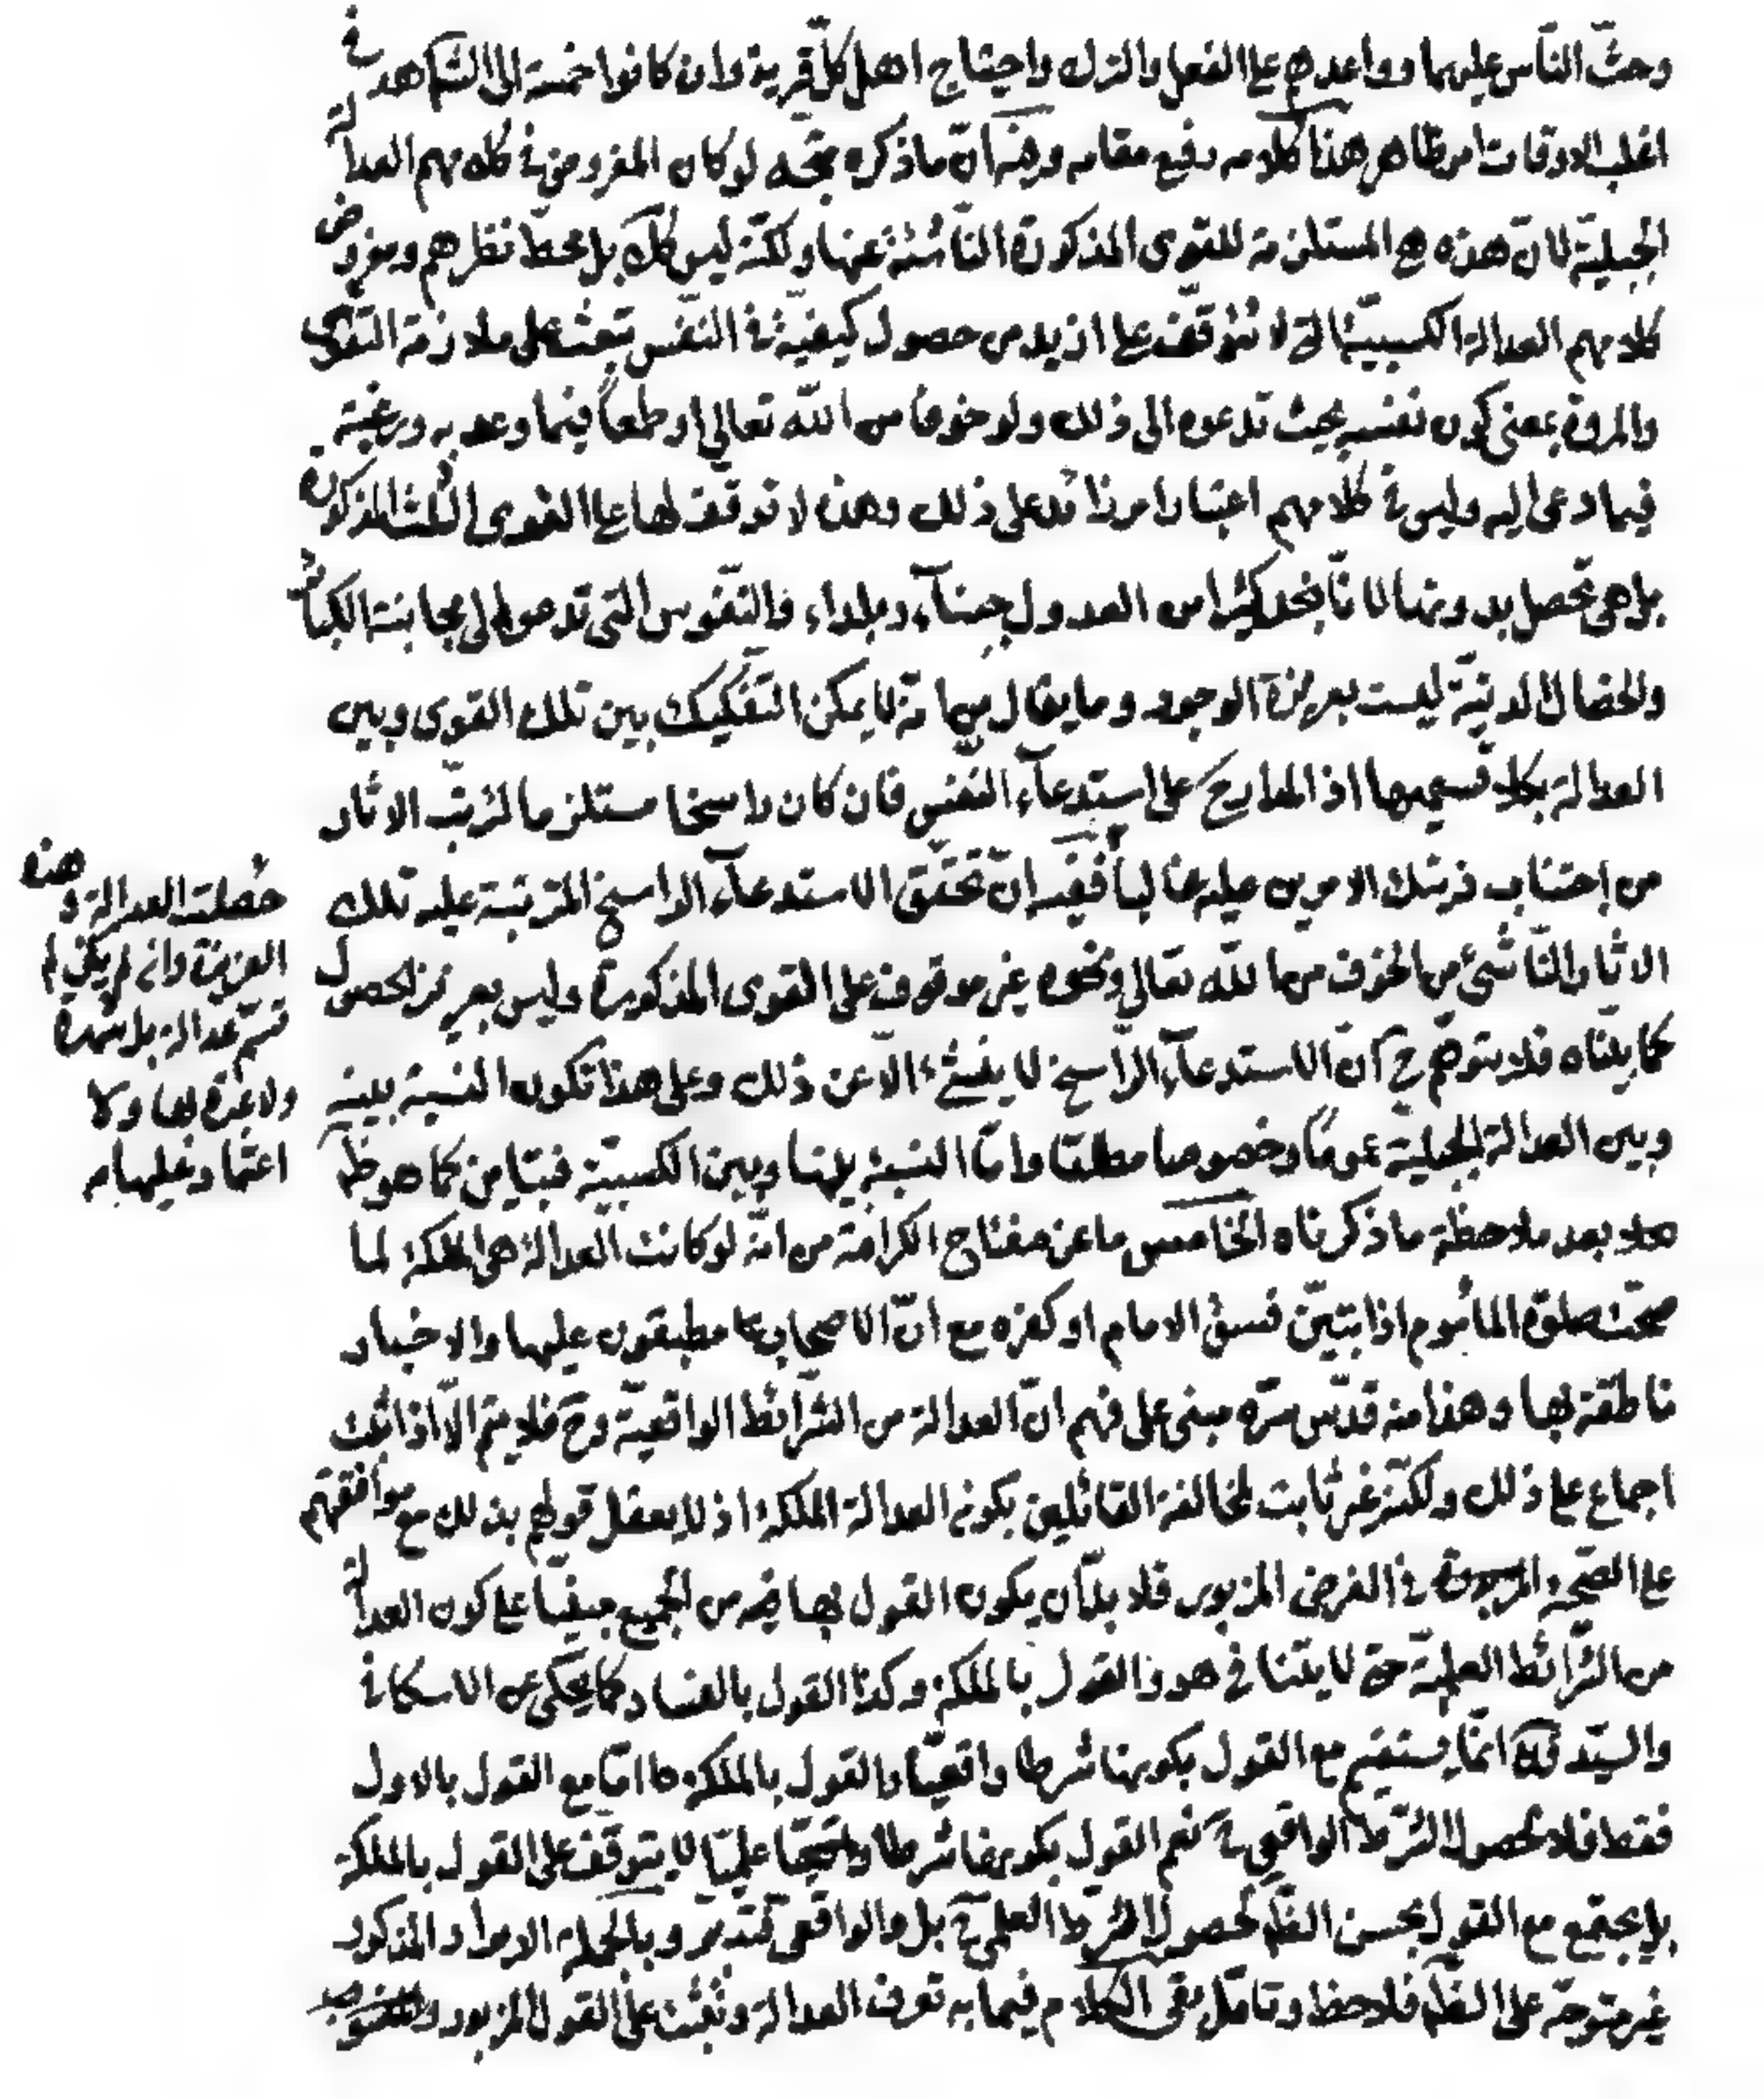 وحثّ النّاس عليهما وواعدهم على الفعل والترك واحتياج اهل كلّ قرية وان كانوا خمسة الى الشاهد في
اغلب الاوقات امر ظاهر هذا كلامه رفع مقامه وفيه انّ ما ذكره متّجه لو كان المفروض في كلامهم العدالة
الجبليّة لانّ هذه هي المستلزمة للقوى المذكورة النّاشئة عنها ولكنّه ليس كك بل محطّ نظرهم ومفروض
كلامهم العدالة الكسبيّة الّتي لا تتوقّف على ازيد من حصول كيفيّة في النفس تبعث على ملازمة التقوى
والمروة بمعنى كون نفسه بحيث تدعوه الى ذلك ولو خوفا من اللّه تعالى او طمعاً فيما وعد به ورغبة
فيما دعى اليه وليس في كلامهم اعتبار امر زائد على ذلك وهذه لا توقّف لها على القوى الثلث المذكورة
بل هي تحصل بدونها لانّا نجد كثيرا من العدول جبناء وبلداء والنّفوس التي تدعو الى مجانبة الكبائر
والخصال الدنيّة ليست بعزيزة الوجود وما يقال من انّه لا يمكن التفكيك بين تلك القوى وبين
العدالة بكلا قسميها اذ المدار ح على استدعاء النّفس فان كان راسخا مستلزما لترتّب الاثار
من اجتناب ذينك الامرين عليه غالباً ففيه انّ تحقّق الاستدعاء الراسخ المترتّبة عليه تلك
الاثار النّاشئ من الخوف من اللّه تعالى ونحوه غير موقوف على القوى المذكورة وليس بعزيز الحصول
كما بيّناه فلا يتوهّم ح انّ الاستدعاء الرّاسخ لا ينشئ الّا عن ذلك وعلى هذا تكون النسبة بينه
وبين العدالة الجبليّة عموماً وخصوصا مطلقا وامّا النسبة بينها وبين الكسبيّة فتباين كما هو ظ
بعد ملاحظة ما ذكرناه الخامس ما عن مفتاح الكرامة من انّه لو كانت العدالة هى الملكة لما
صحّت صلوة المأموم اذا تبيّن فسق الامام او كفره مع انّ الاصحاب مطبقون عليها والاخبار
ناطقة بها وهذا منه قدّس سرّه مبنى على فهم انّ العدالة من الشّرائط الواقعيّة وح فلا يتمّ الّا اذا ثبت
اجماع على ذلك ولكنّه غير ثابت لمخالفة القائلين بكون العدالة الملكة اذ لا يعقل قولهم بذلك مع موافقتهم
على الصّحة المزبورة في الفرض المزبور فلا بدّ ان يكون القول بها فيه من الجميع مبنيّا على كون العدالة
من الشّرائط العلميّة حتى لا يتنافى هو والقول بالملكة وكذا القول بالفساد كما يحكى عن الاسكافي
والسّيّد انّما يستقيم مع القول بكونها شرطا واقعيّا والقول بالملكة امّا مع القول بالاول
فقط فلا لحصول الشّرط الواقعى ح نعم القول بكونها شرطا علميّا لا يتوقّف على القول بالملكة
بل يجتمع مع القول بحسن الظّ لحصول الشّرط العلمى ح بل والواقعى فتدبّر وبالجملة الايراد المذكور
غير متوجّه على الظّ فلاحظ وتامّل بقى الكلام فيما به تعرف العدالة وتثبت على القول المزبور
حصلت العدالة وهذه
العزيزة وان لم يكن لم
تتمّ عدالة بل شهرة
ولا عبرة بها ولا
اعتماد عليها